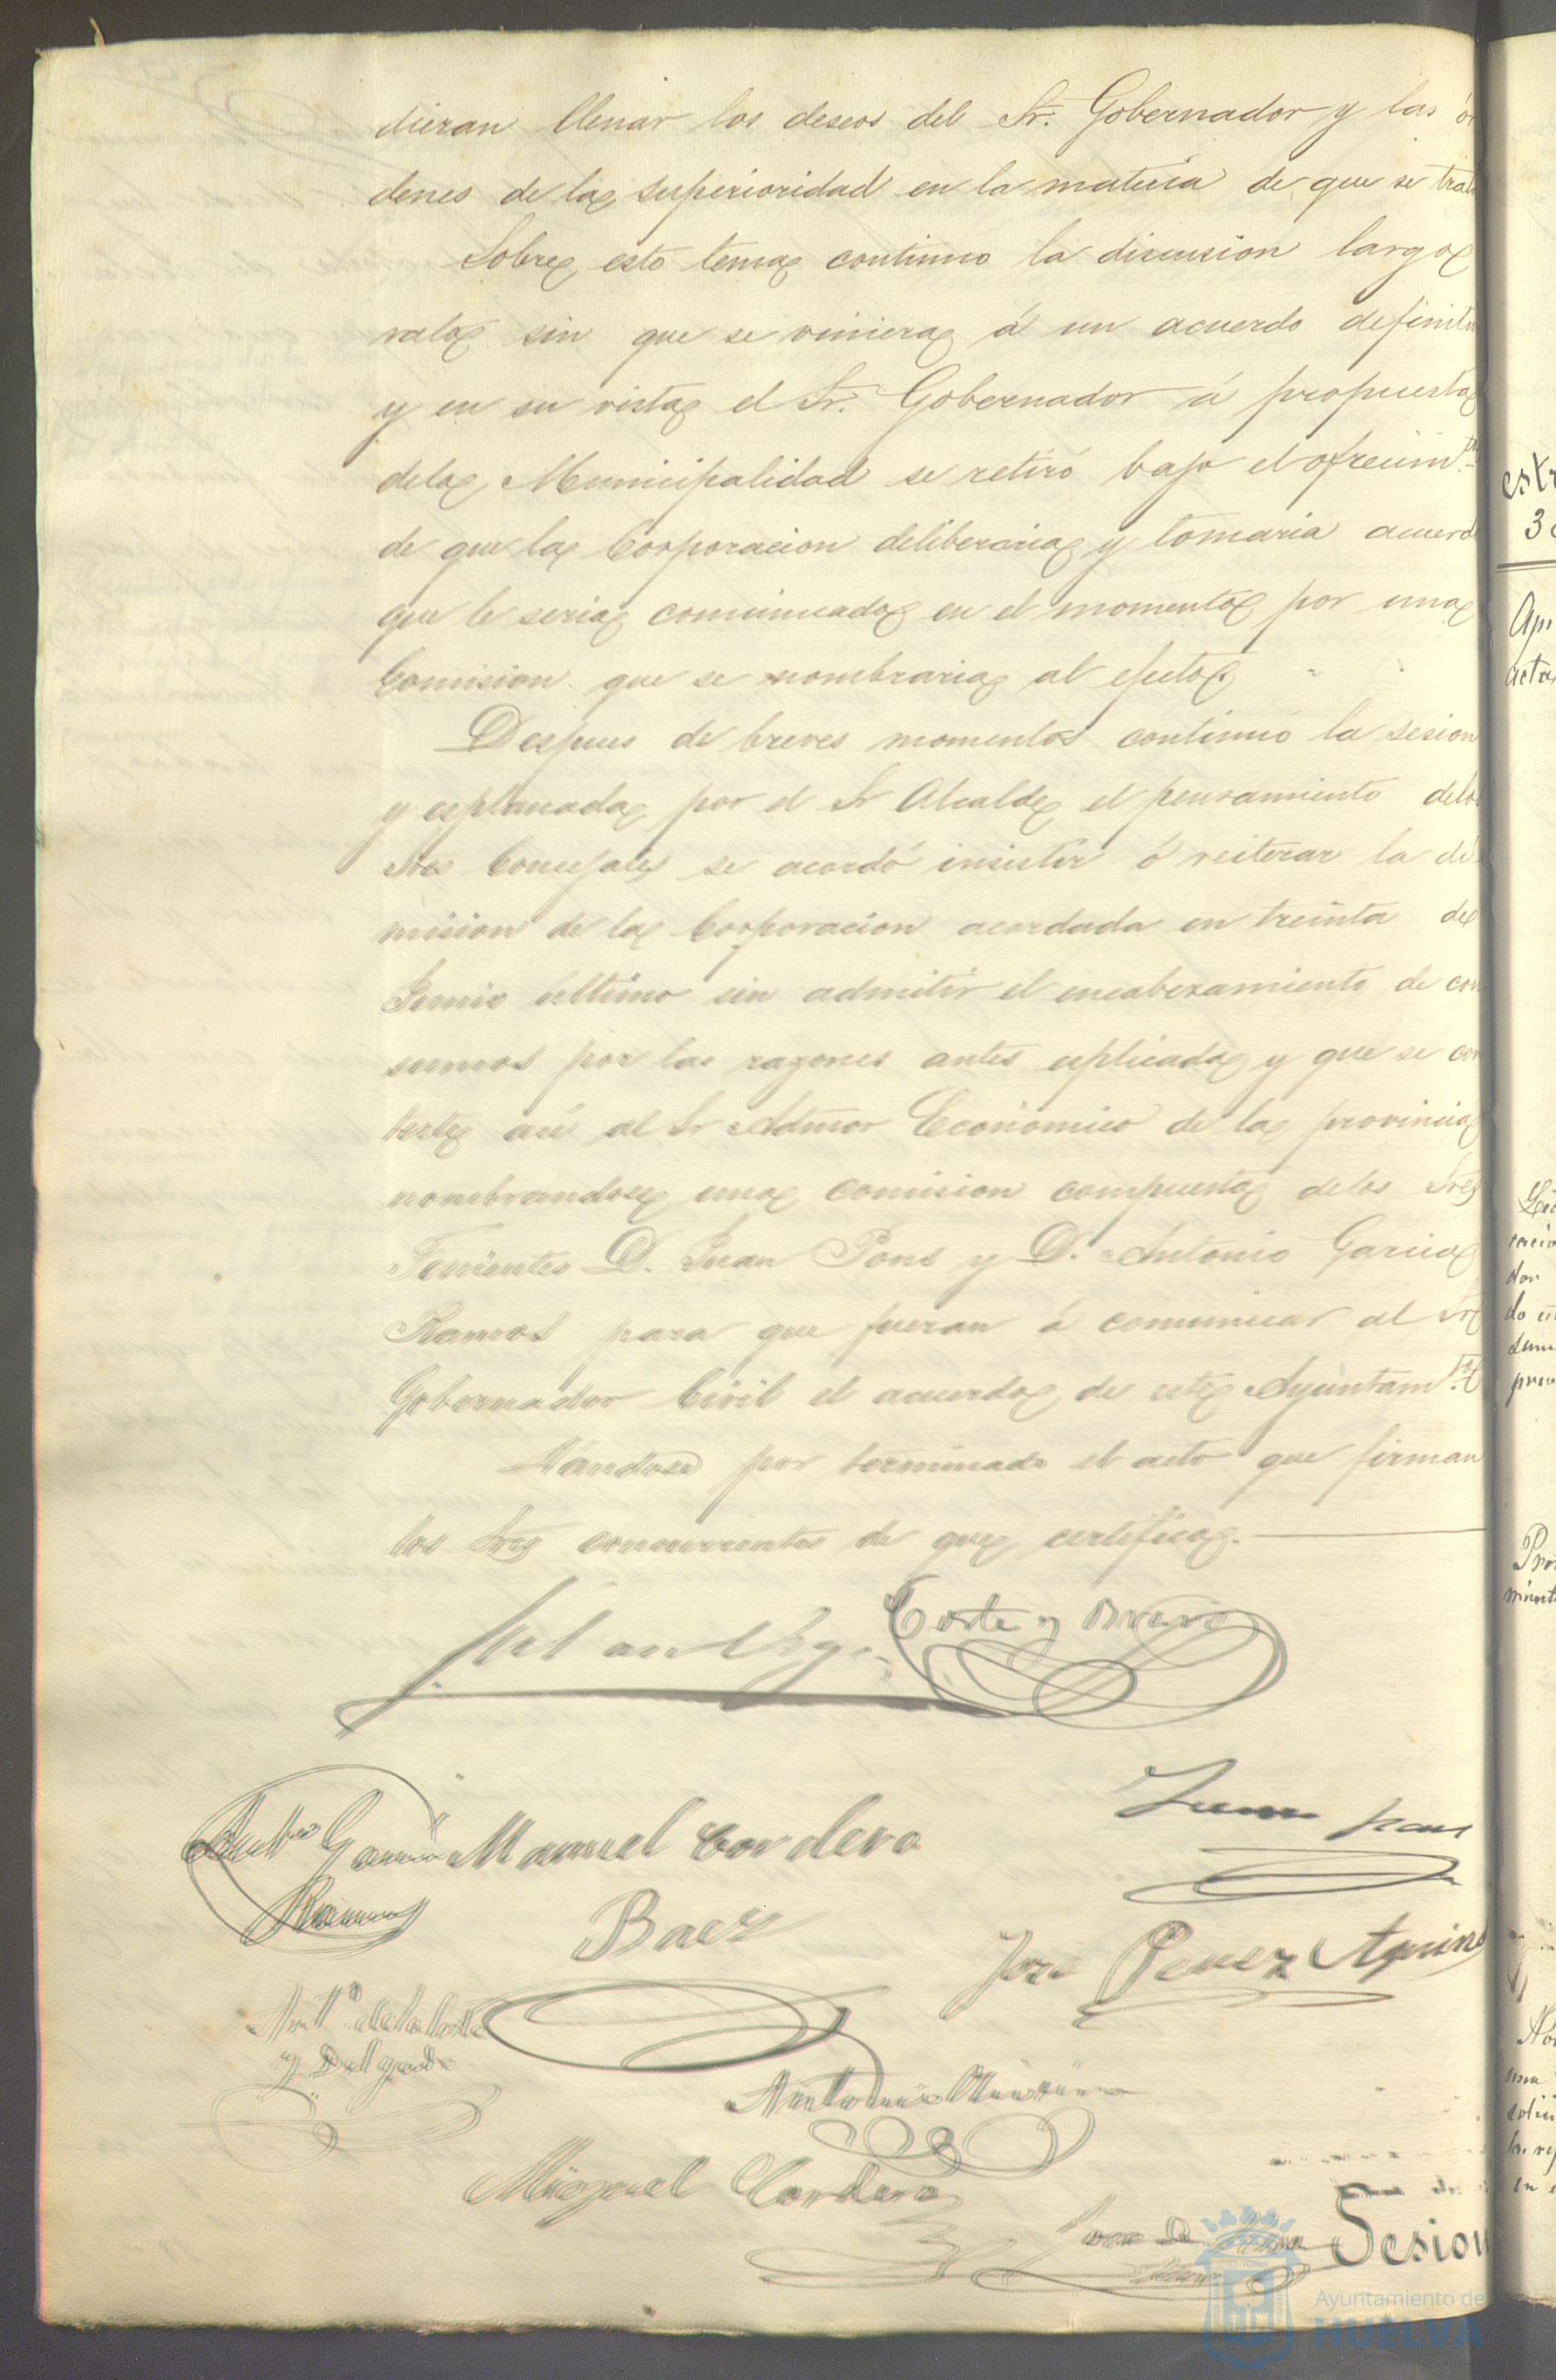 dieran llenar los deseos del Sr. Gobernador y las ór
denes de la superioridad en la materia de que se trata
Sobre esto tema continuo la discusion largo
rato sin que se viniera á un acuerdo definiti
y en su vista el Sr. Gobernador á propuesta
dela Municipalidad se retiró bajo el ofrecim.to
de que la Corporacion deliberaria y tomaria acuerdo
que le seria comunicado en el momento por una
Comision que se nombraria al efecto.
Despues de breves momentos continuó la sesion
y esplanada por el Sr Alcalde el pensamiento delos
Sres Concejales se acordó insistir ó reiterar la di
mision de la Corporacion acordada en treinta de
Junio ultimo sin admitir el encabezamiento de con
sumos por las razones antes esplicadas y que se con
teste asi al Sr Admor Económico de la provincia
nombrandose una comision compuesta delos Sres
Tenientes D. Juan Pons y D. Antonio Garcia
Ramos para que fueran á comunicar al Sr
Gobernador Civil el acuerdo de este Ayuntam.to
Dandose por terminado el acto que firman
los Sres concurrentes de que certifico.
Corte y Bravo
Anto Garcia Manuel Cordero Juan Pons
Ramos Baez
José Perez Aquino
Anto de la Corte
y Delgado
Antonio
Miguel Cordero
José
Sesion
Ayuntamiento de
HUELVA
estr
3
Apr
acta